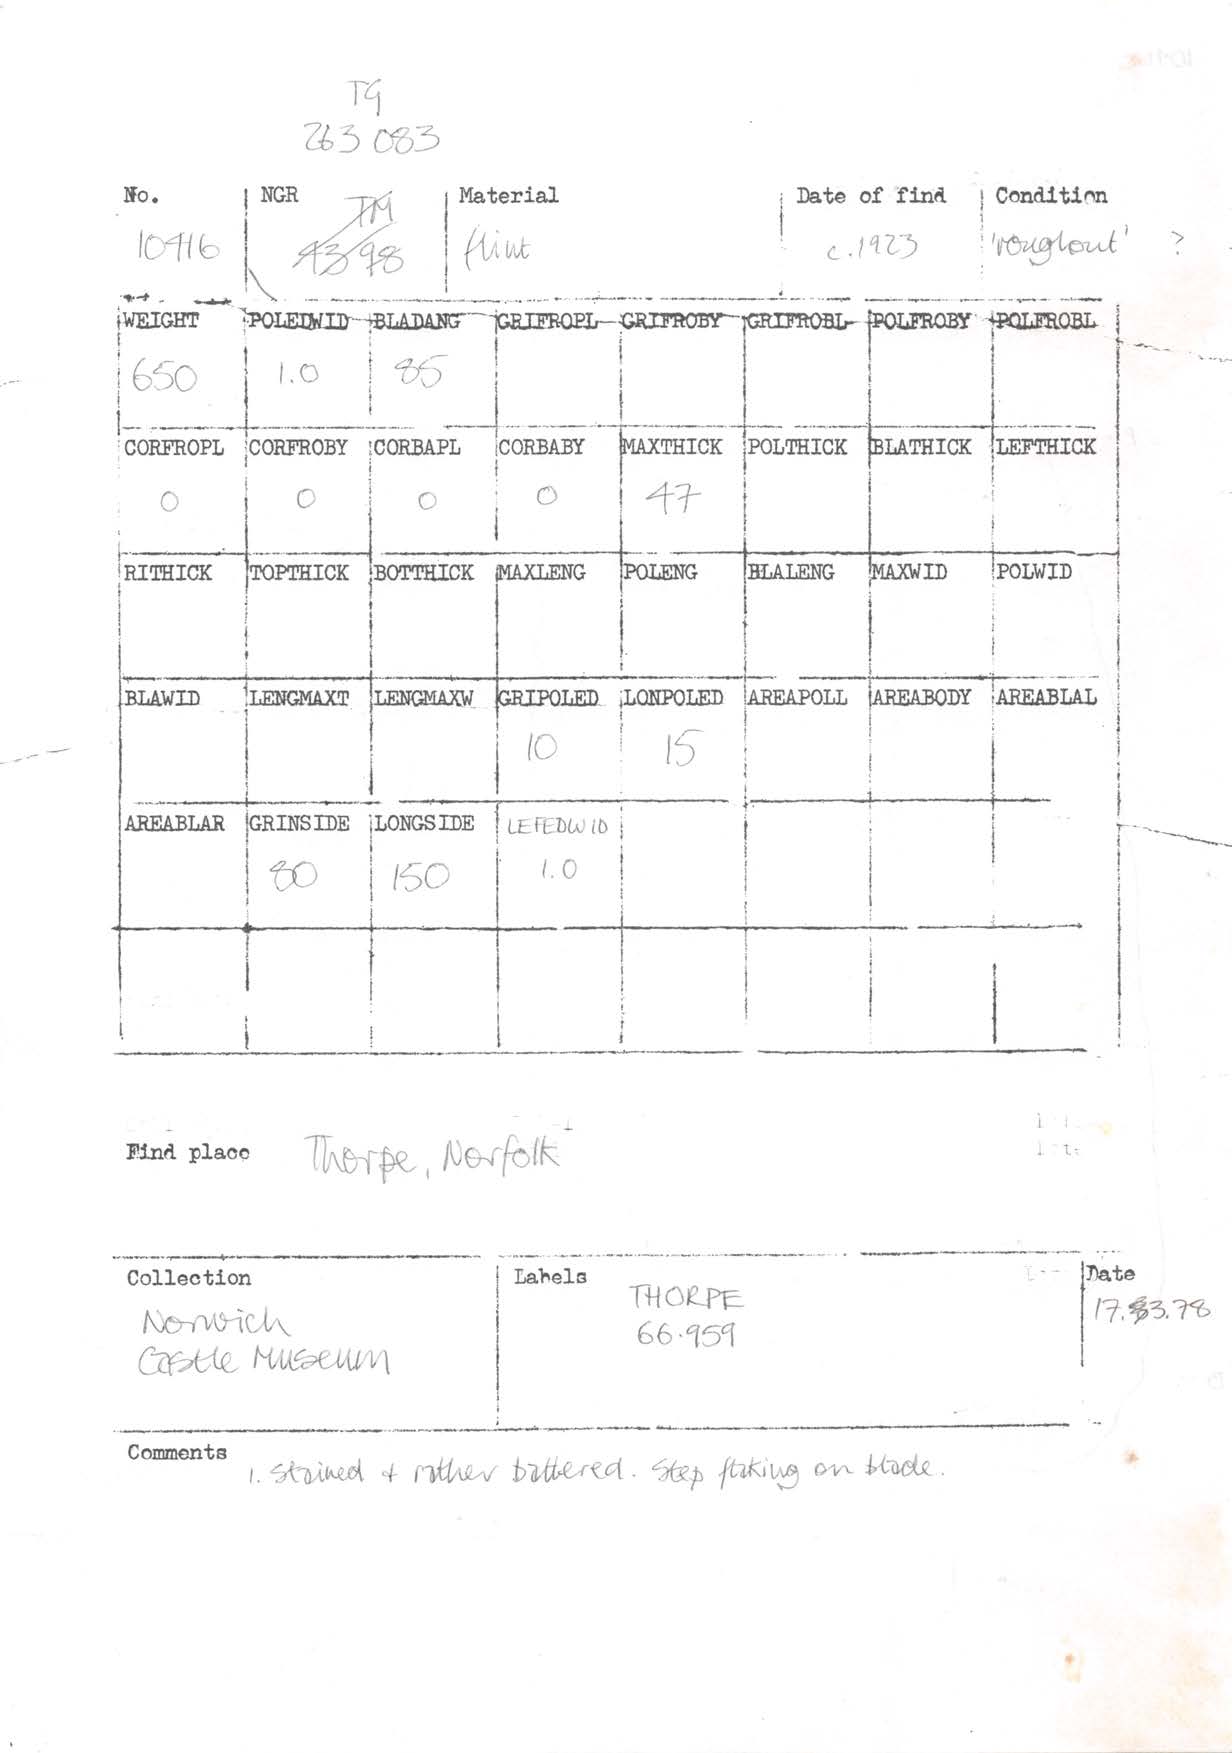 TG
263 083
No. NGR Material Date of find Condition
TM
10416 43/98 flint c.1923 'roughout' ?
WEIGHT POLEDWID BLADANG GRIFROPL GRIFROBY GRIFROBL POLFROBY POLFROBL
650 1.0 85
CORFROPL CORFROBY CORBAPL CORBABY MAXTHICK POLTHICK BLATHICK LEFTHICK
0 0 0 0 47
RITHICK TOPTHICK BOTTHICK MAXLENG POLENG BLALENG MAXWID POLWID
BLAWID LENGMAXT LENGMAXW GRIPOLED LONPOLED AREAPOLL AREABODY AREABLAL
10 15
AREABLAR GRINSIDE LONGSIDE LEFEDWID
80 150 1.0
Find place Thorpe, Norfolk
Collection Labels Date
THORPE 17.3.78
Norwich 66.959
Castle Museum
Comments 1. Stained & rather battered. Step flaking on blade.